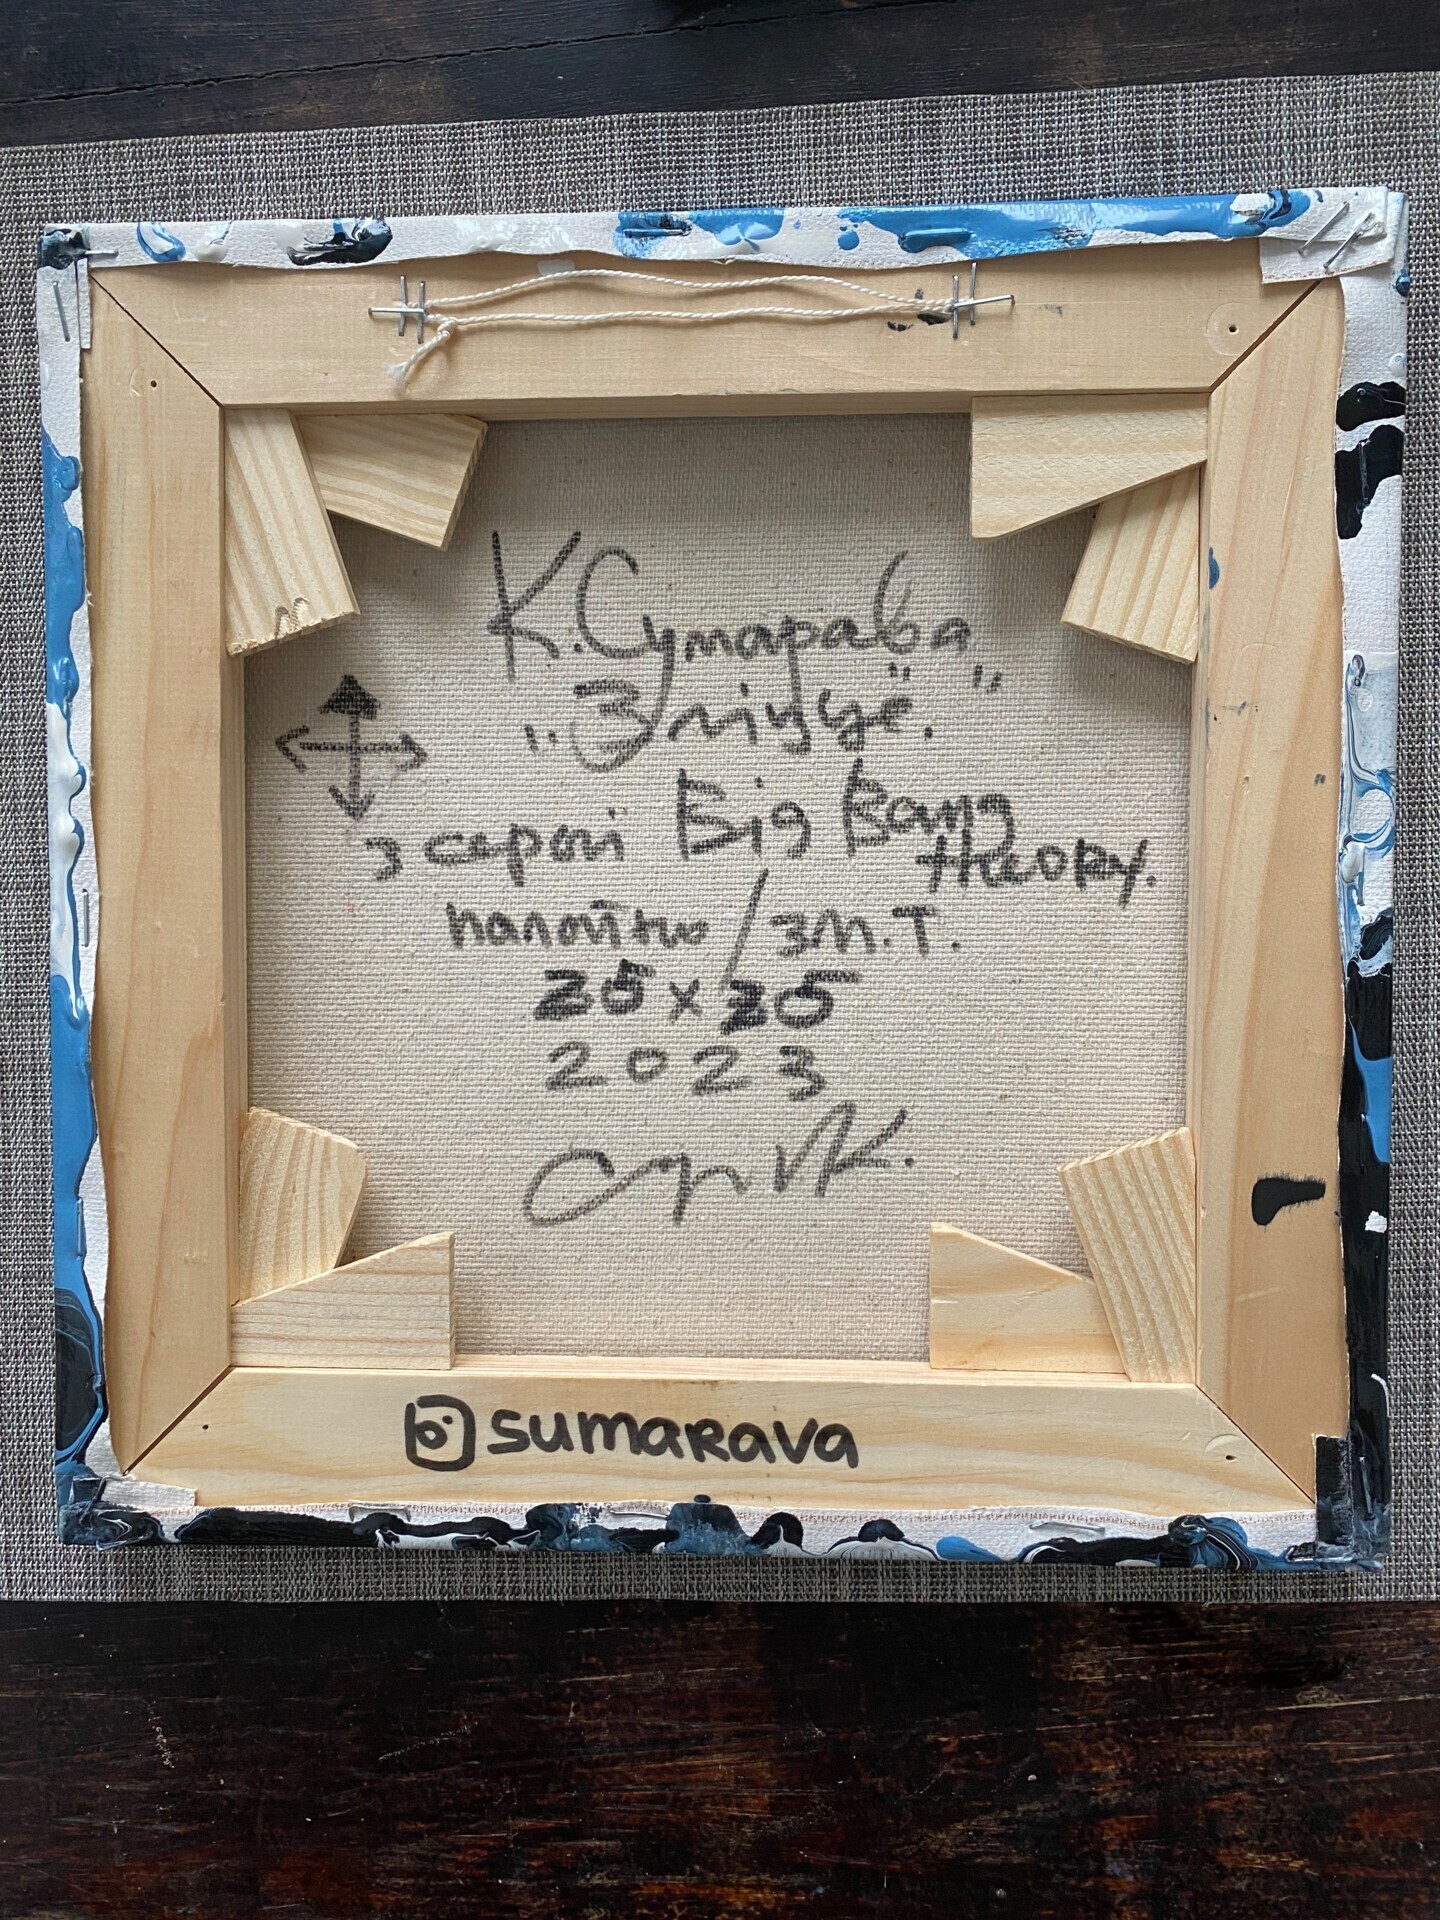 К. Сумарава
"Зліццё".
з серыі Big Bang
theory.
палатно / зм.т.
35 x 35
2023
sumarava